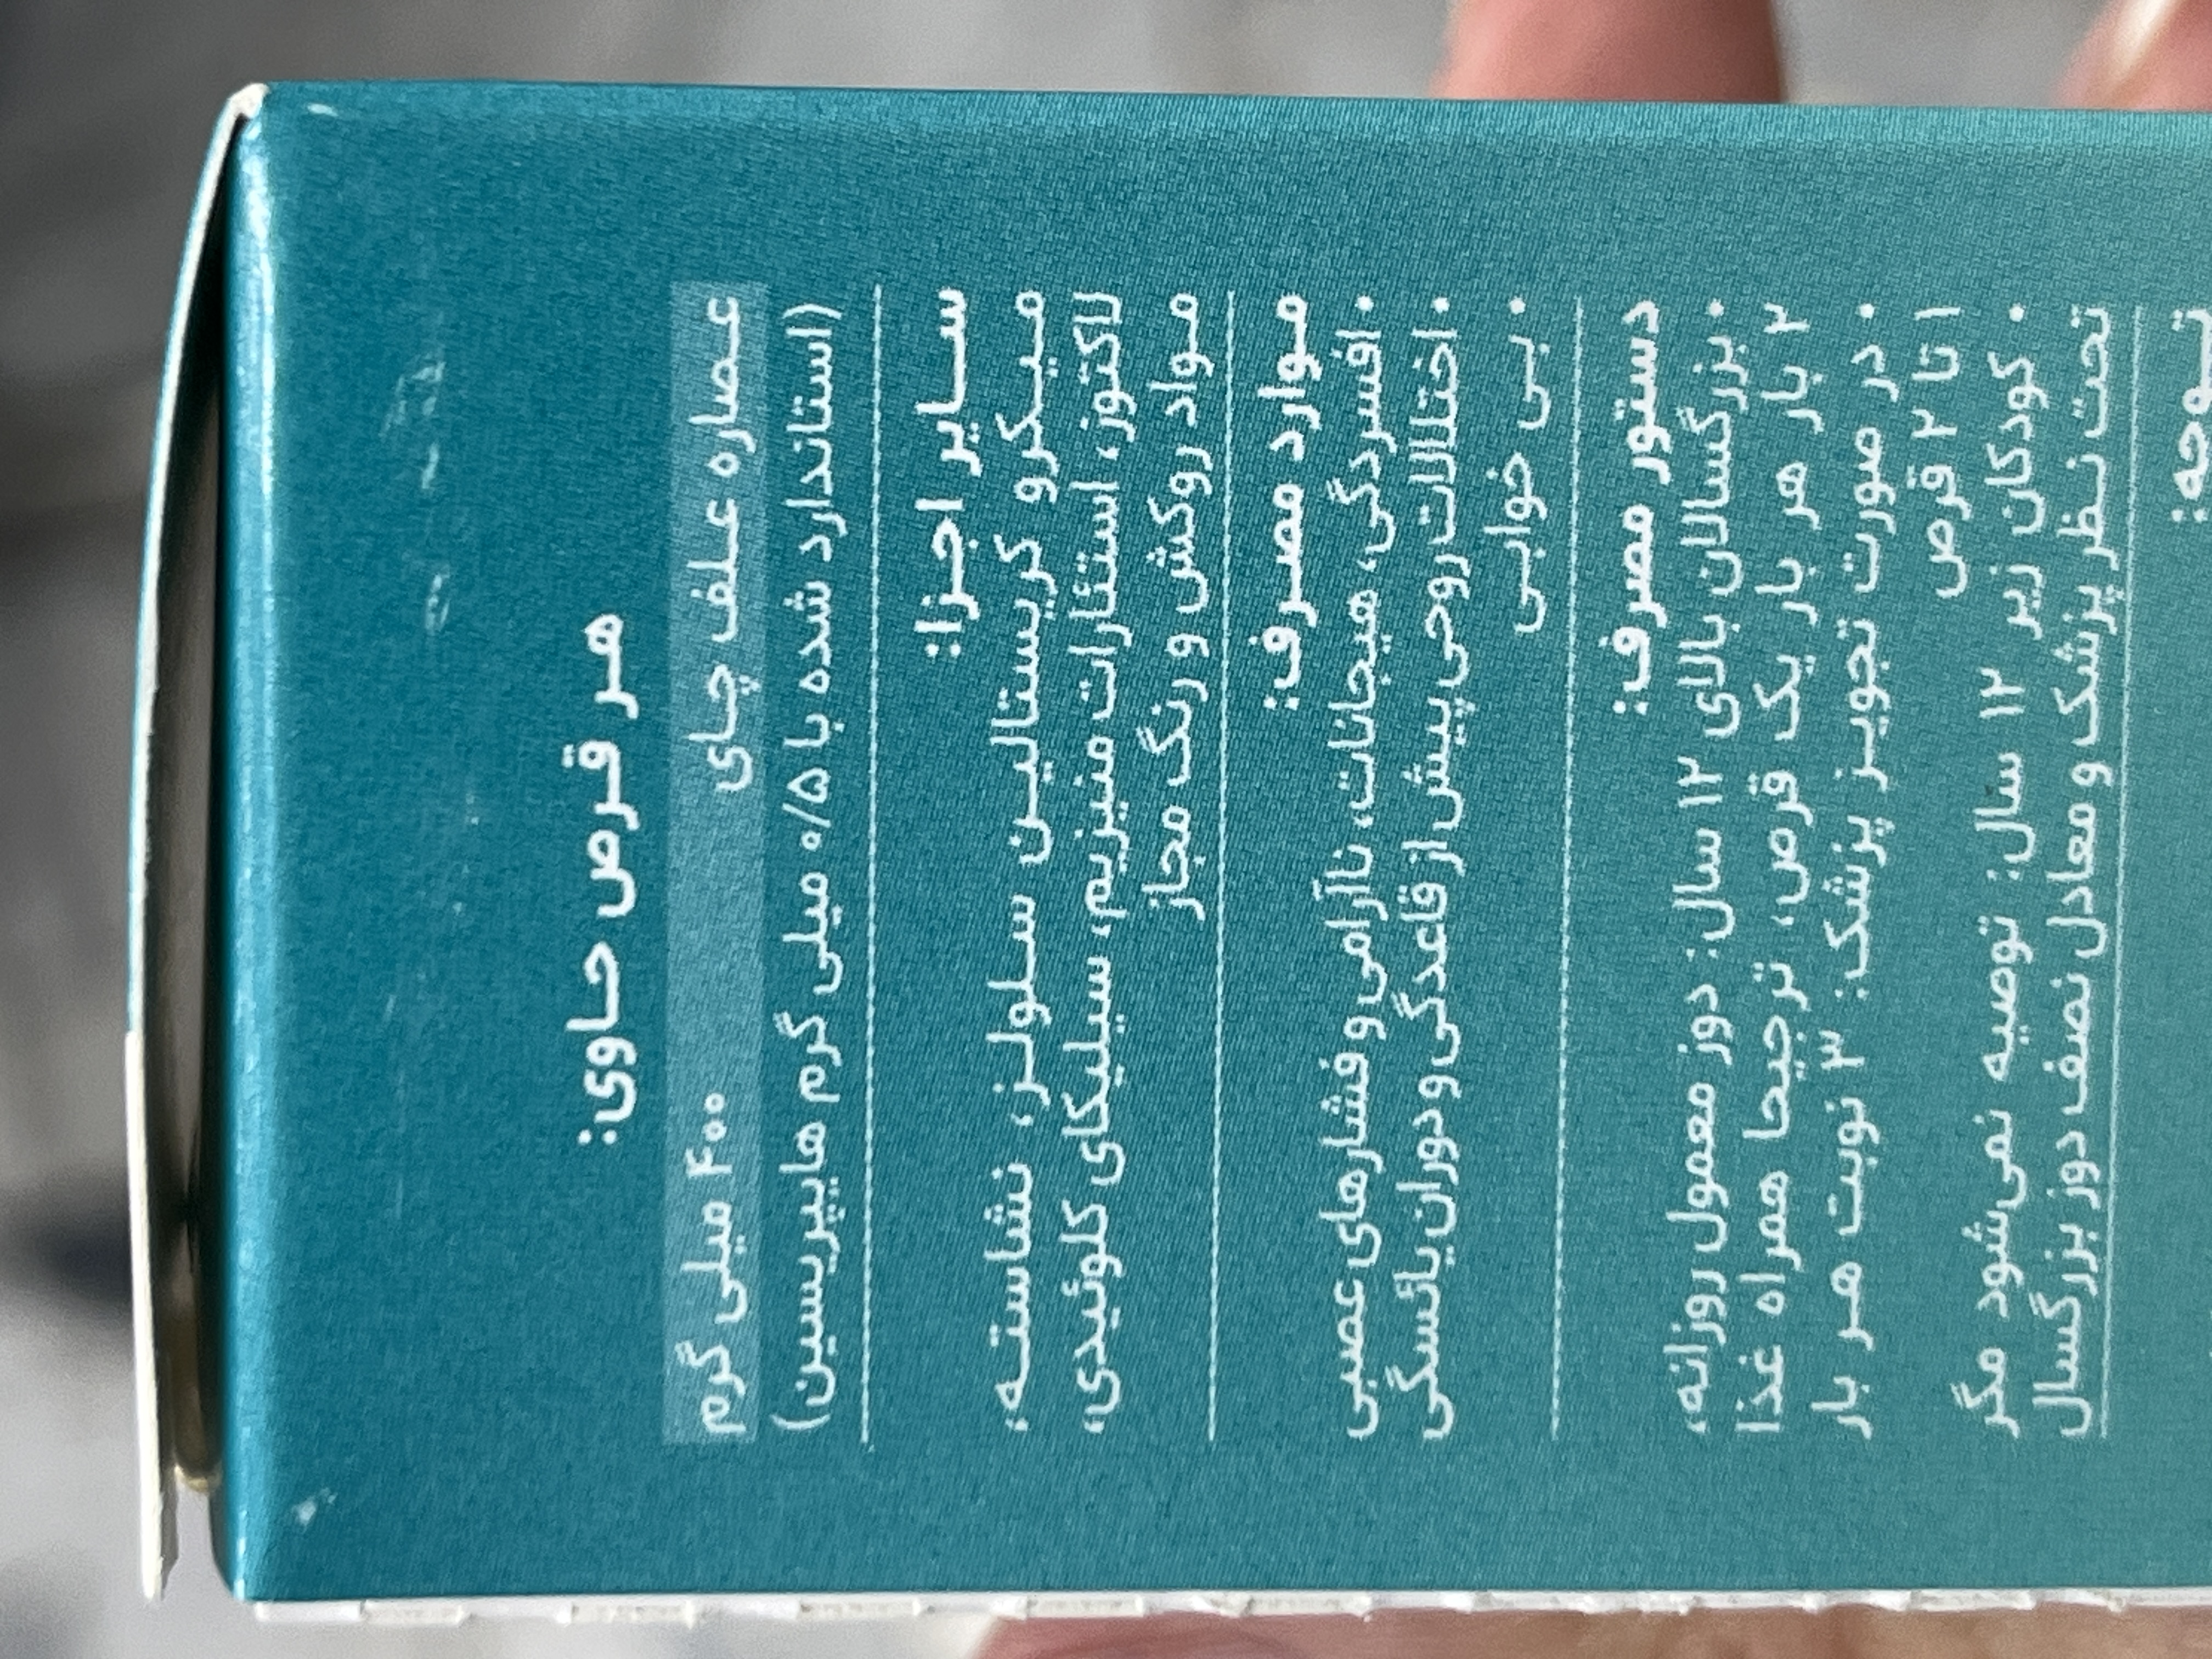 هر قرص حاوی:
عصاره علف چای ۴۰۰ میلی گرم
(استاندارد شده با ۰/۵ میلی گرم هایپریسین)
سایر اجزا:
میکرو کریستالین سلولز، نشاسته،
لاکتوز، استئارات منیزیم، سیلیکای کلوئیدی،
مواد روکش و رنگ مجاز
موارد مصرف:
• افسردگی، هیجانات، ناآرامی و فشارهای عصبی
• اختلالات روحی پیش از قاعدگی و دوران یائسگی
• بی خوابی
دستور مصرف:
• بزرگسالان بالای ۱۲ سال: دوز معمول روزانه،
۲ بار هر بار یک قرص، ترجیحا همراه غذا
• در صورت تجویز پزشک: ۳ نوبت هر بار
۱ تا ۲ قرص
• کودکان زیر ۱۲ سال: توصیه نمی‌شود مگر
تحت نظر پزشک و معادل نصف دوز بزرگسال
توجه: